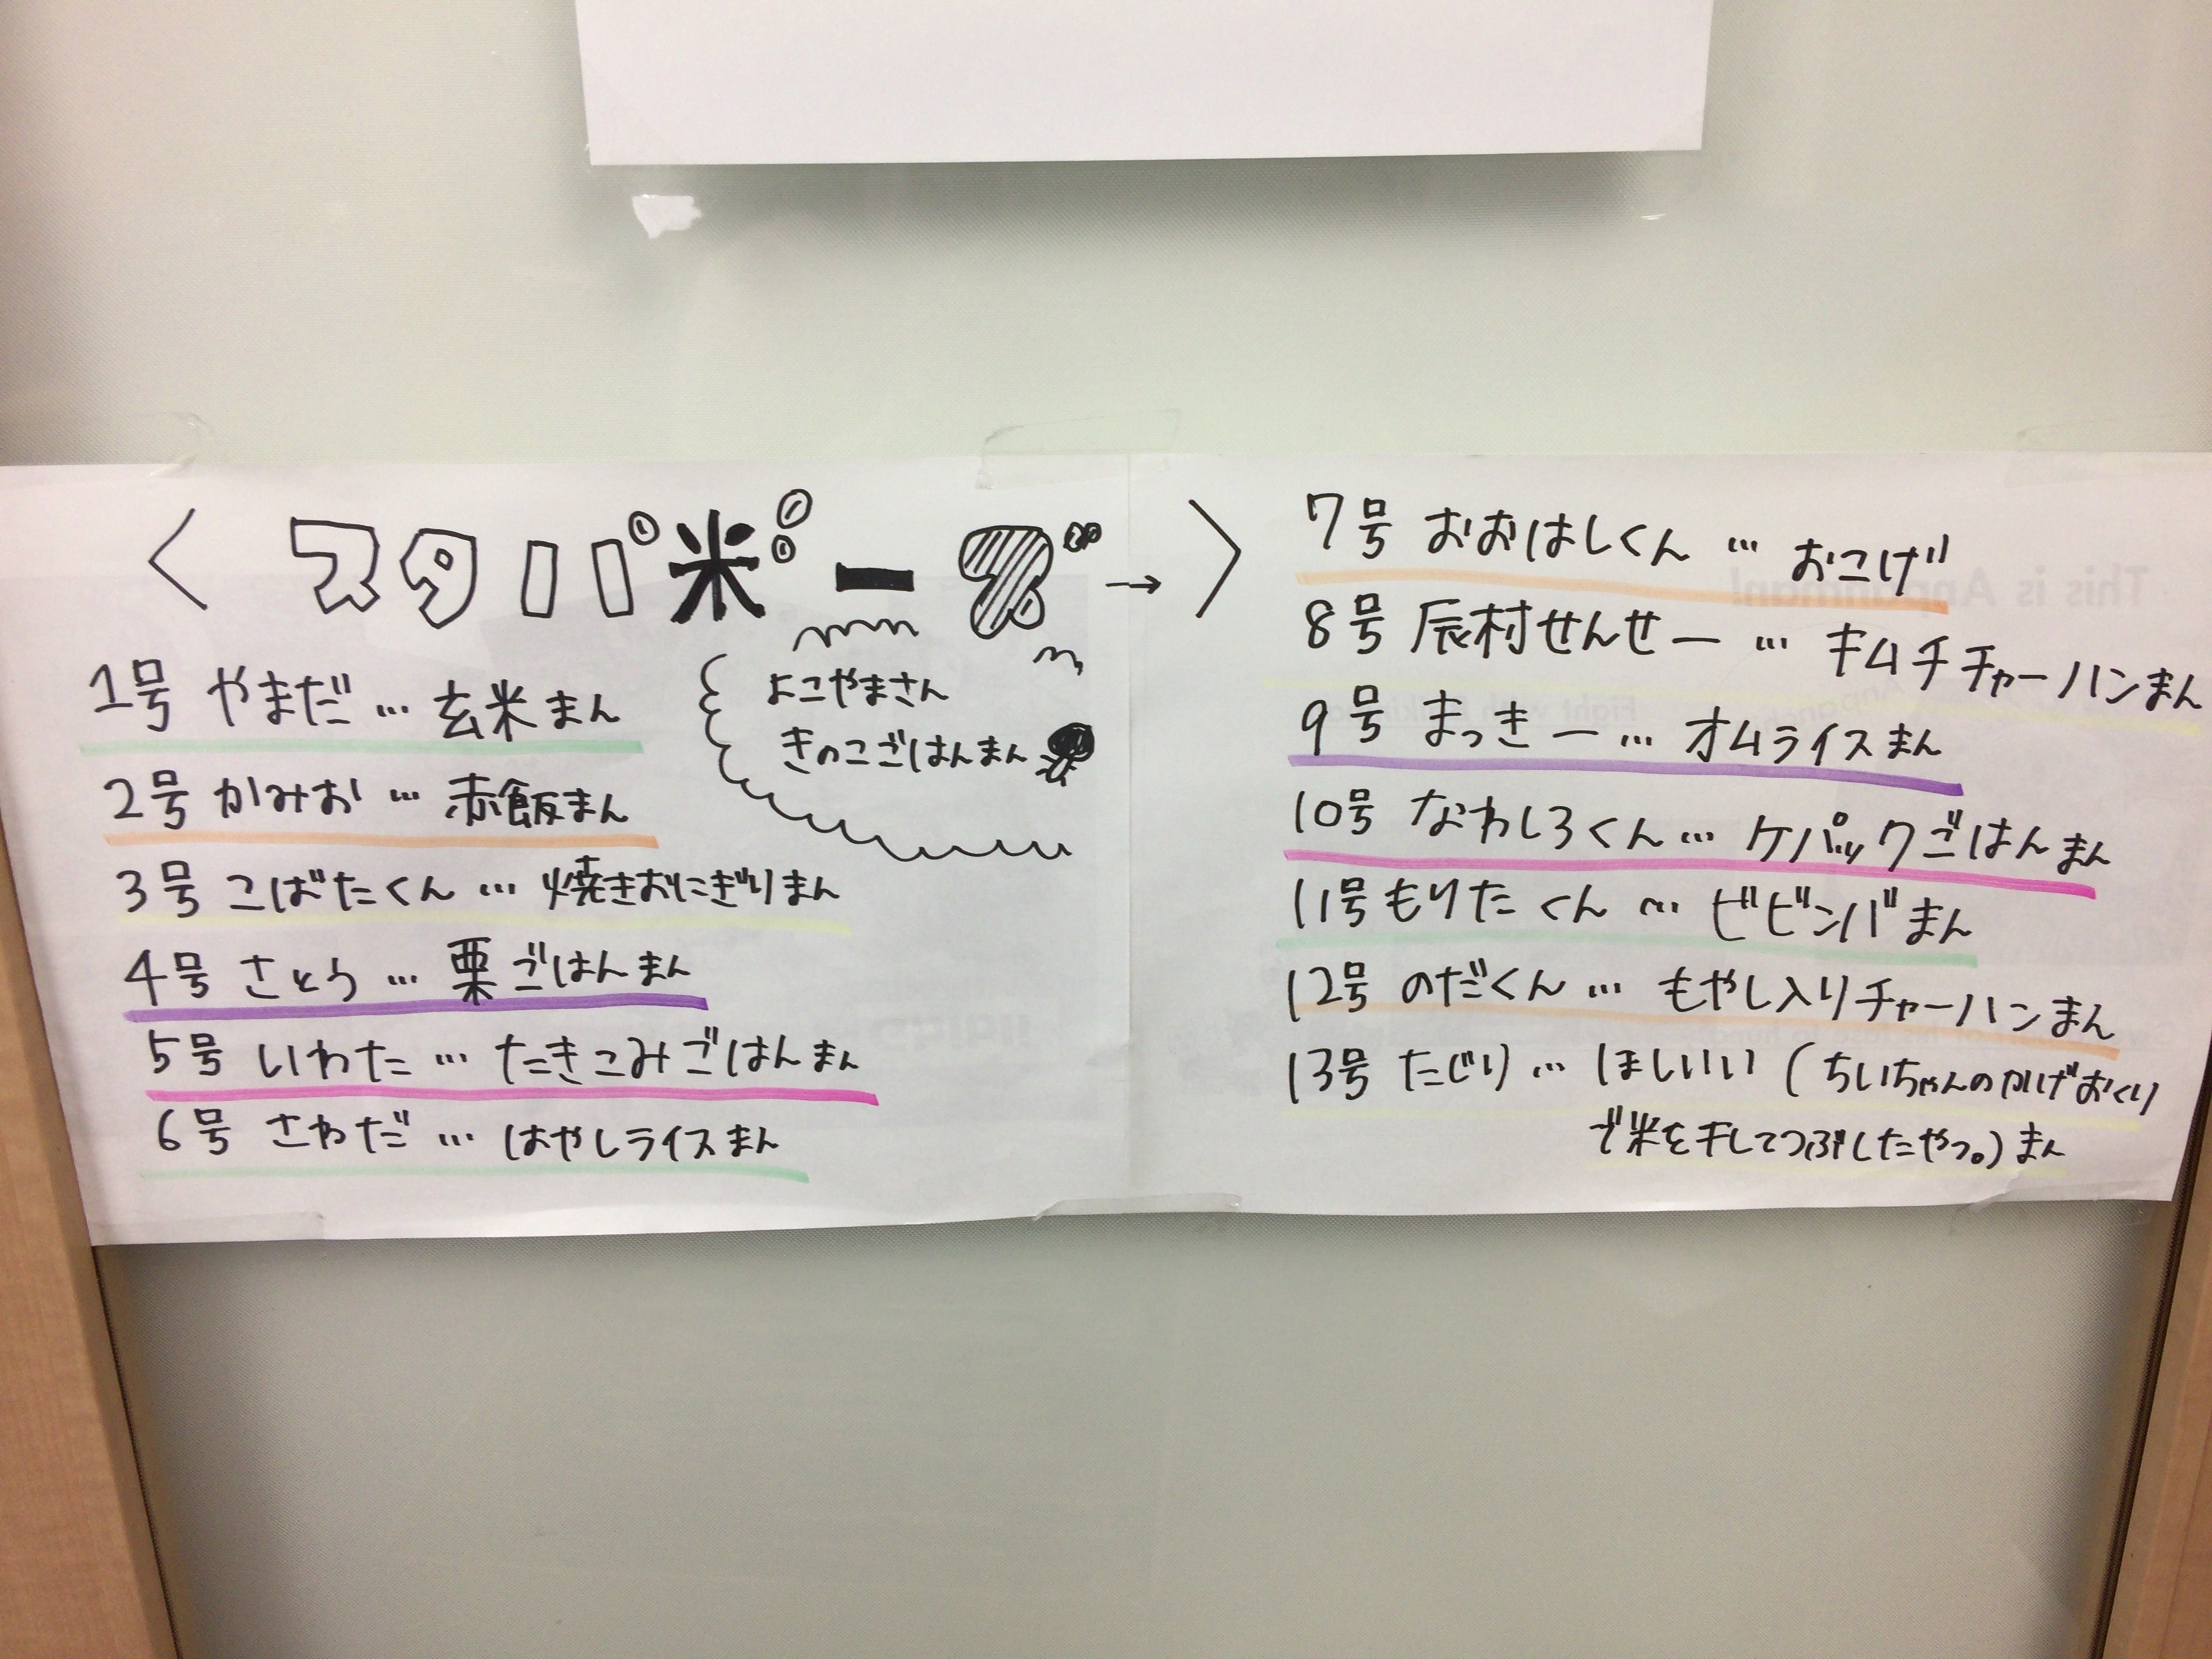 〈 スタパ米ーズ → 〉
1号 やまだ … 玄米まん
よこやまさん
きのこごはんまん
2号 かみお … 赤飯まん
3号 こばたくん … 焼きおにぎりまん
4号 さとう … 栗ごはんまん
5号 いわた … たきこみごはんまん
6号 さわだ … はやしライスまん
7号 おおはしくん … おこげ
8号 辰村せんせー … キムチチャーハンまん
9号 まっきー … オムライスまん
10号 なわしろくん … ケパックごはんまん
11号 もりたくん … ビビンバまん
12号 のだくん … もやし入りチャーハンまん
13号 たじり … ほしいい (ちいちゃんのかげおくり
で米を干してつぶしたやつ。) まん
This is Anpanman!